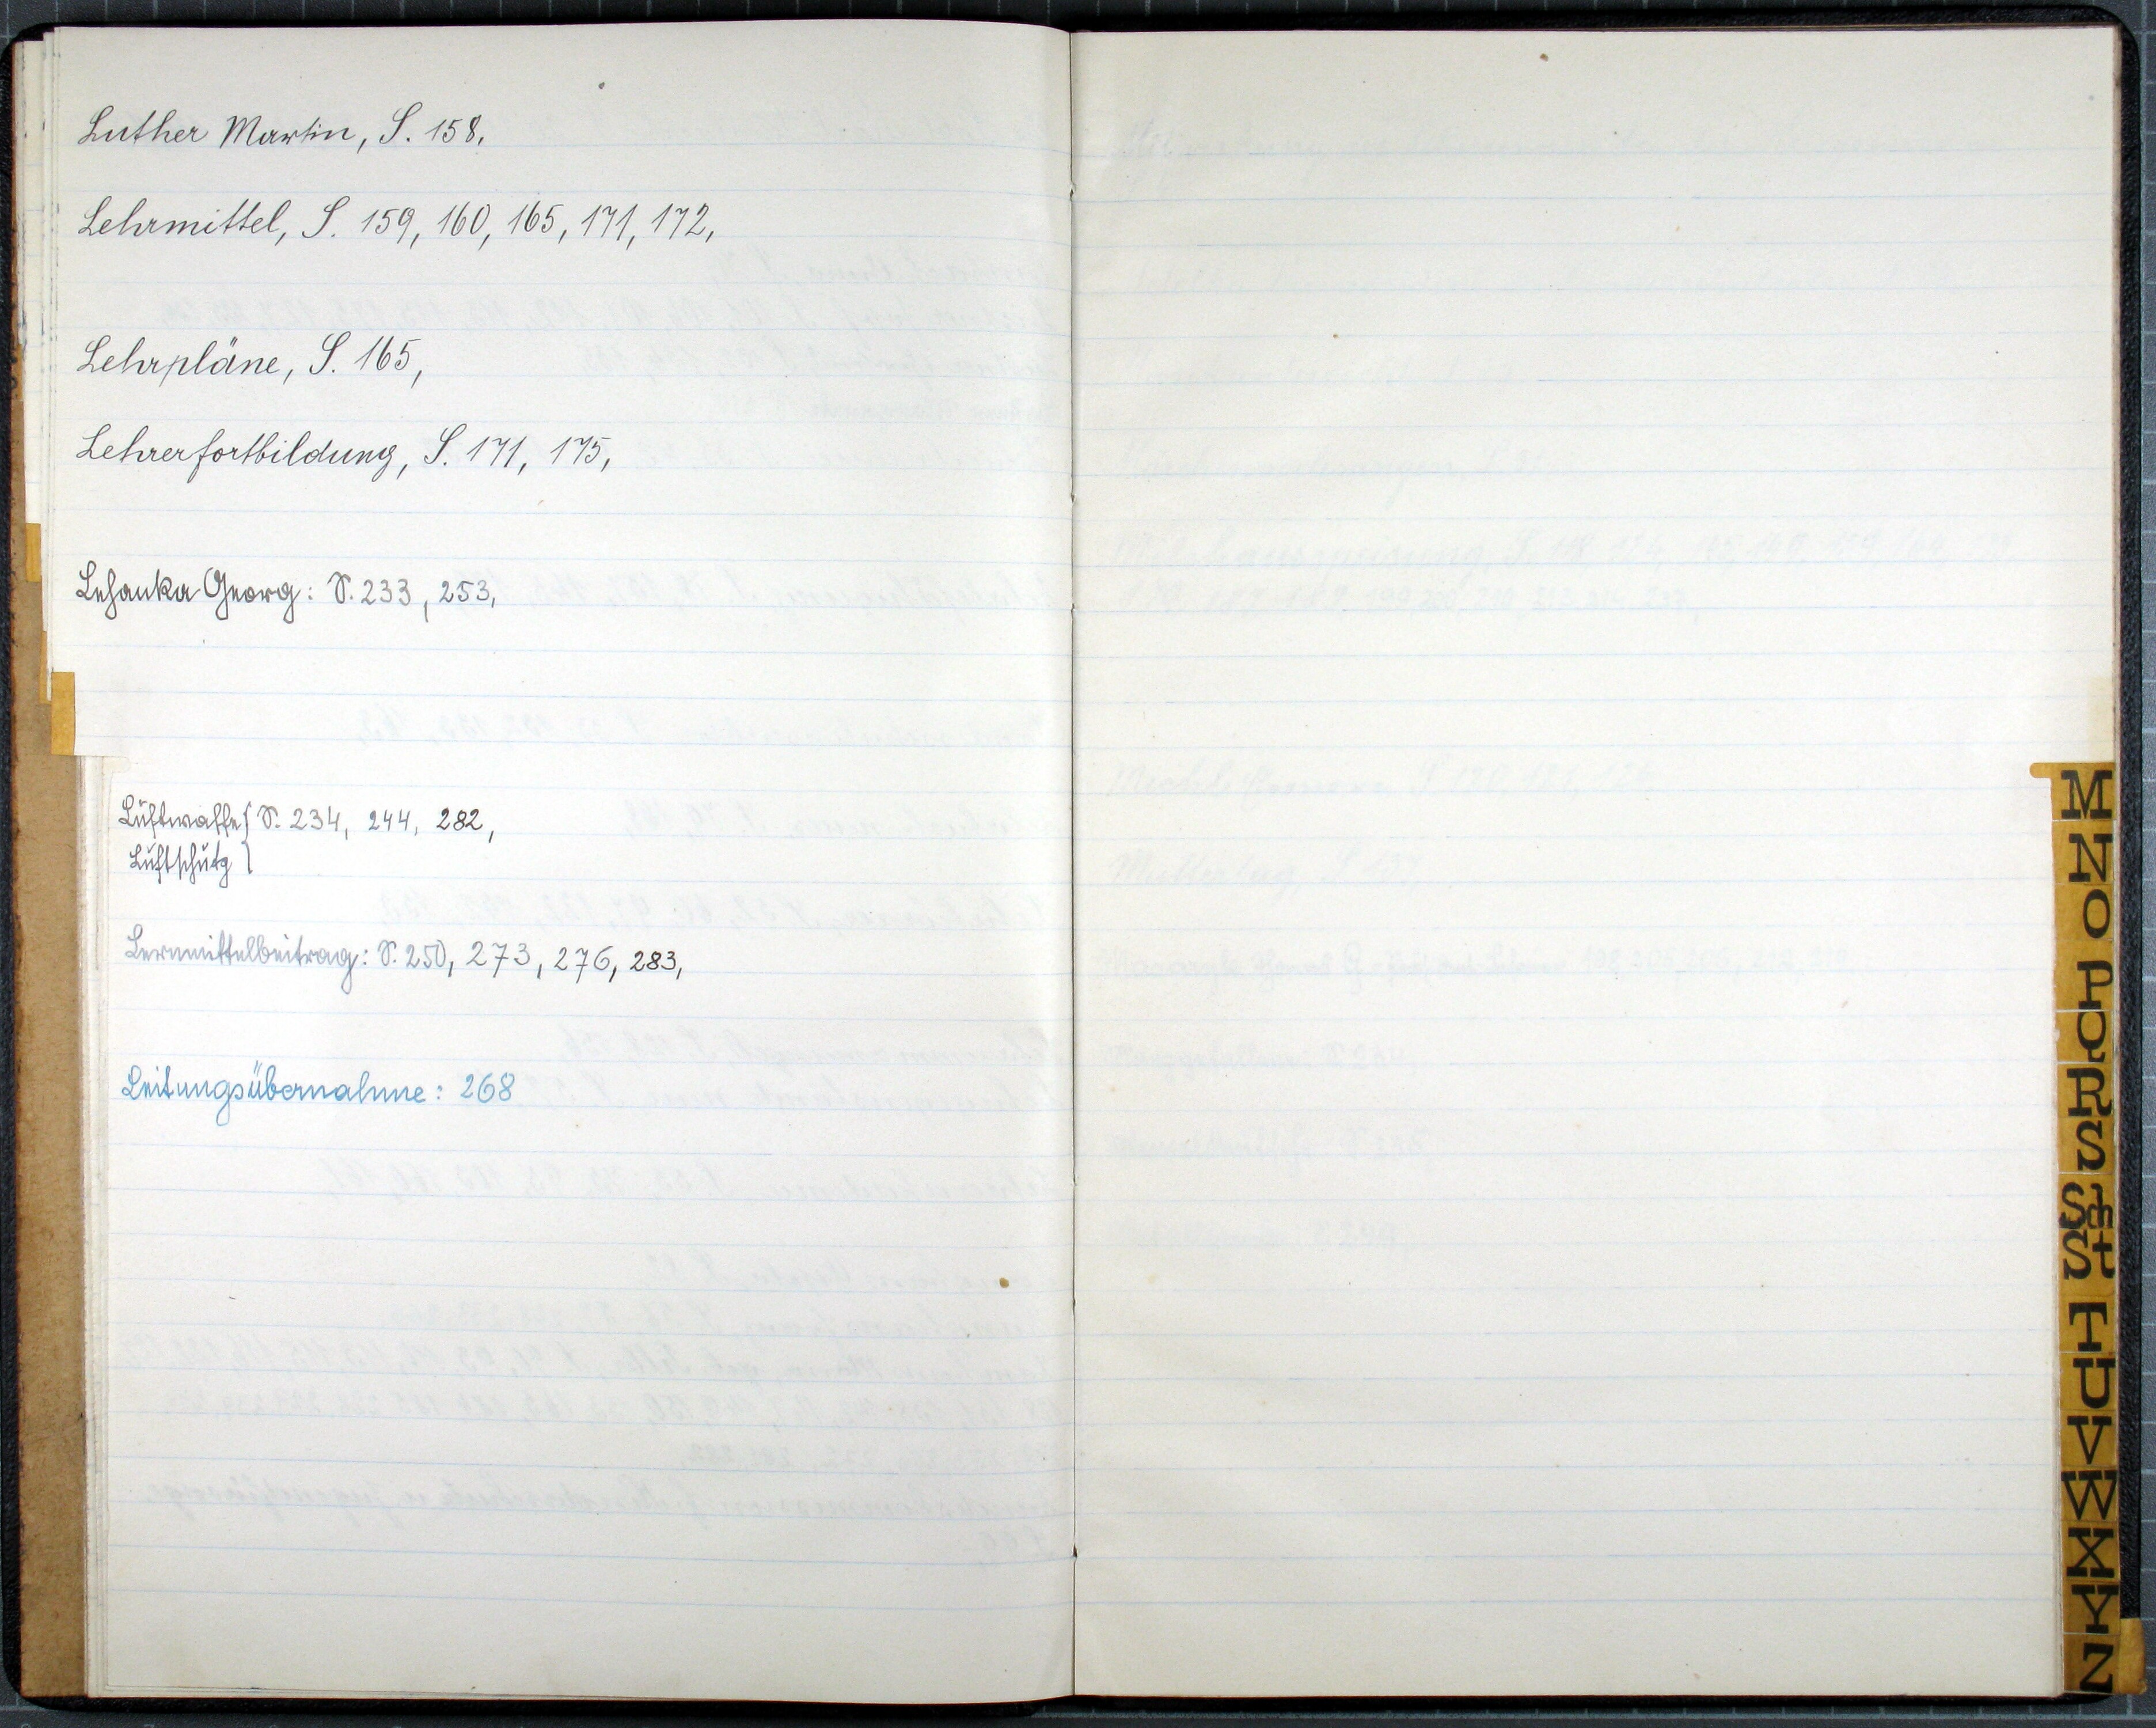 Luther Martin, S. 158,
Lehrmittel, S. 159, 160, 165, 171, 172,
Lehrpläne, S. 165,
Lehrerfortbildung, S. 171, 175,
Lehanka Georg: S. 233, 253,
Luftwaffe } S. 234, 244, 282,
Luftschutz }
Lernmittelbeitrag: S. 250, 273, 276, 283,
Leitungsübernahme: 268
M
N
O
P
Q
R
S
Sch
St
T
U
V
W
X
Y
Z